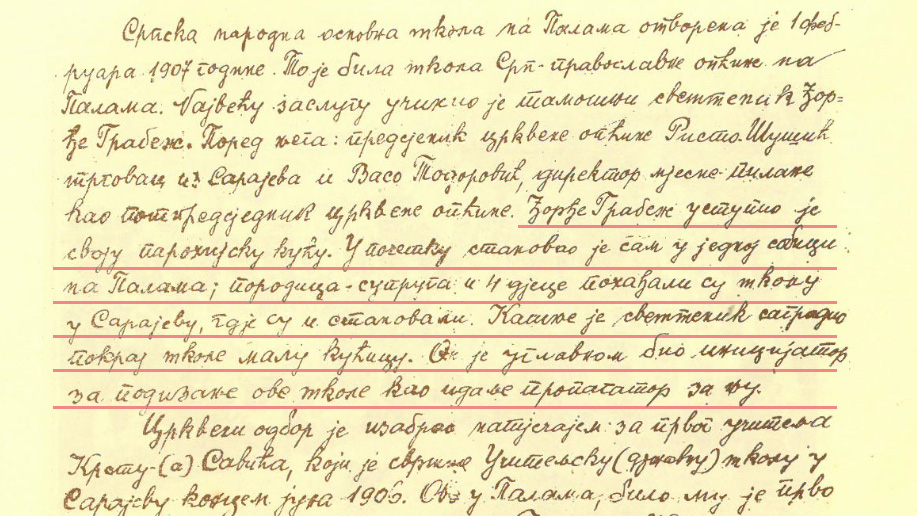 Српска народна основна школа на Палама отворена је 1 феб-
руара 1907 године. То је била школа Срп-православне општине на
Палама. Највећу заслугу учинио је тамошњи свештеник Ђор-
ђе Грабеж. Поред њега: предсједник црквене опћине Ристо Шушић
трговац из Сарајева и Васо Тодоровић, директор мјесне пилане
као потпредсједник црквене опћине. Ђорђе Грабеж уступио је
своју парохијску кућу. У почетку становао је сам у једној собици
на Палама; породица - супруга и 4 дјеце похађали су школу
у Сарајеву, гдје су и становали. Касније је свештеник саградио
покрај школе малу кућицу. Он је углавном био иницијатор
за подизање ове школе као и даље пропагатор за њу.
Црквени одбор је изабрао натјечајем за првог учитеља
Крсту-(а) Савића, који је свршио Учитељску (државну) школу у
Сарајеву концем јуна 1906. Ово у Палама, било му је прво